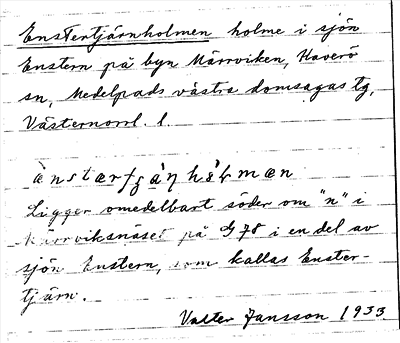 Enstertjärnholmen holme i sjön
Enstern på byn Märrviken, Haverö
sn, Medelpads västra domsagas tg,
Västernorrl. l.
Ligger omedelbart söder om "n" i
Märrviksnäset på G78 i en del av
sjön Enstern, som kallas Enster-
tjärn.
Valter Jansson 1933.